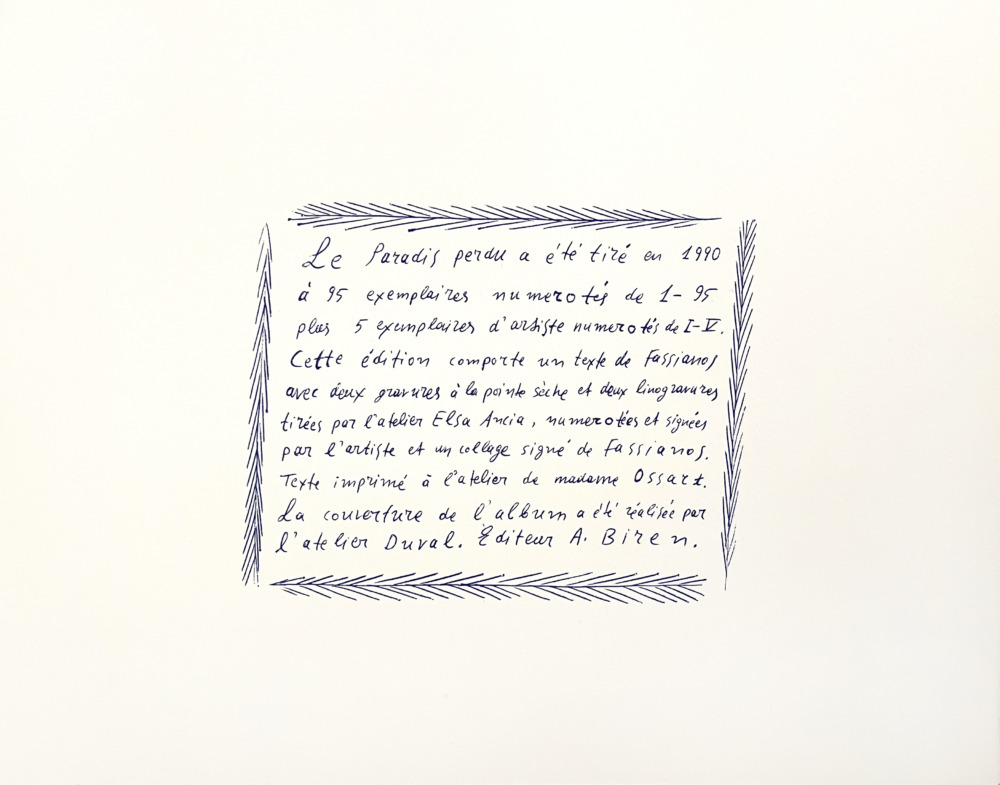 Le Paradis perdu a été tiré en 1990
à 95 exemplaires numerotés de 1-95
plus 5 exemplaires d'artiste numerotés de I-V.
Cette édition comporte un texte de Fassianos
avec deux gravures à la pointe sèche et deux linogravures
tirées par l'atelier Elsa Ancia, numerotées et signées
par l'artiste et un collage signé de Fassianos.
Texte imprimé à l'atelier de madame Ossart.
La couverture de l'album a été réalisée par
l'atelier Duval. Éditeur A. Biren.